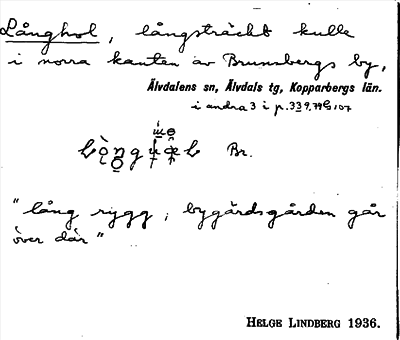 Långhol, långsträckt kulle
i norra kanten av Brunnsbergs by,
Älvdalens sn, Älvdals tg, Kopparbergs län.
i andra 3 i p.
Br.
"lång rygg, bygårdsgården går
över där"
HELGE LINDBERG 1936.